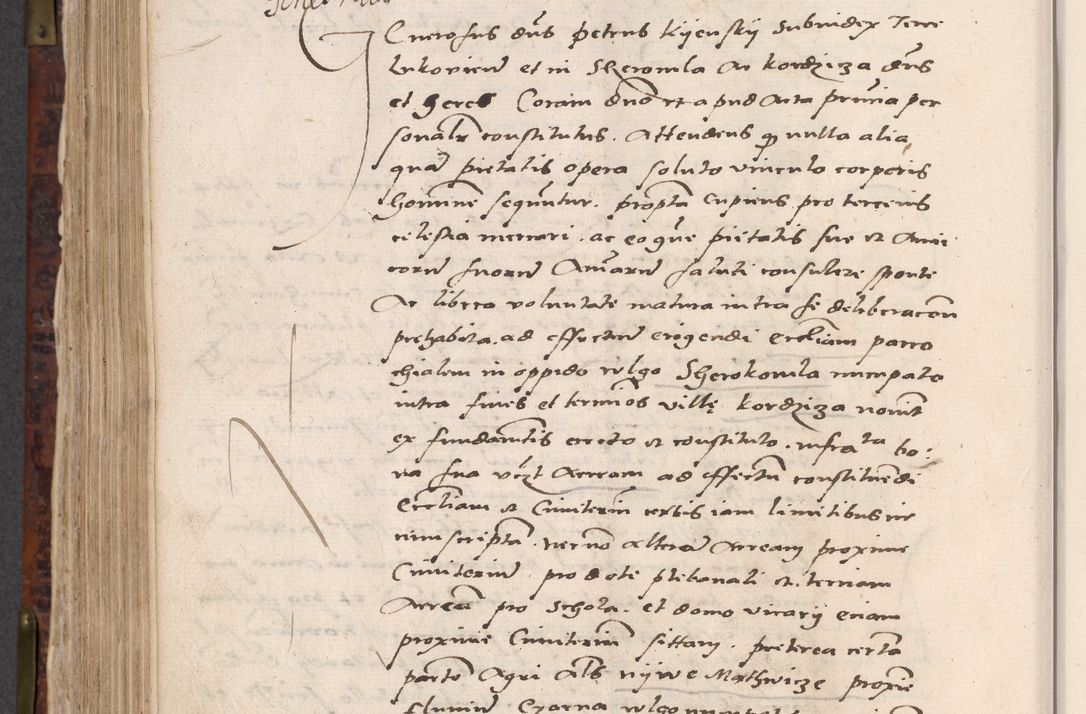 Generosus dns petrus kijenskij Subiudex Terre
lukovien et in Sheromla Ac kordziza dns
et heres Coram dno et apud Acta pruia per
sonalr constitutus. Attendens qp nulla alia
qua pietatis opera soluto vinculo corporis
homine sequutur. propta Cupiens pro terrenis
celestia mercari. ac eoque pietatis sue et Ami
corn suorn Amarn saluti consulere sponte
Ac libera voluntate matura intra se deliberacon
prehabita. ad effectum erigendi eccliam parro
chialem in oppido wlgo Sherokomla nuncupato
intra fines et termios ville kordziza nouit
ex fundametis erecto et constituto. infra ta bo:
na sua vczt Arream ad effectu constituedi
Eccliam et Cimiteriu certis iam limitibus cir
cumscripta. necno altera Arream proxime
Cimiteriu. pro dote plebanali et. terciam
Arrea pro Schola. et domo vicarij eciam
proxime Cimiteriu sittam. preterea certa
parte Agri Als nijwe Mathwicze proxie
fluuiu Czarna wlgo